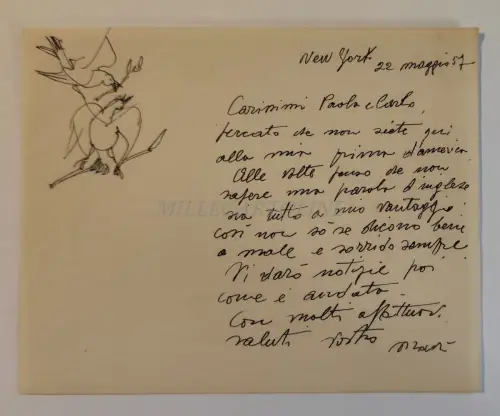 New York
22 maggio 57
Carissimi Paola e Carlo,
peccato che non siete qui
alla mia prima d'america
Alle volte penso che non
sapere una parola d'inglese
sia tutto a mio vantaggio
così non so se dicono bene
o male e sorrido sempre
Vi darò notizie poi
come è andata.
Con molti affettuosi
saluti vostro